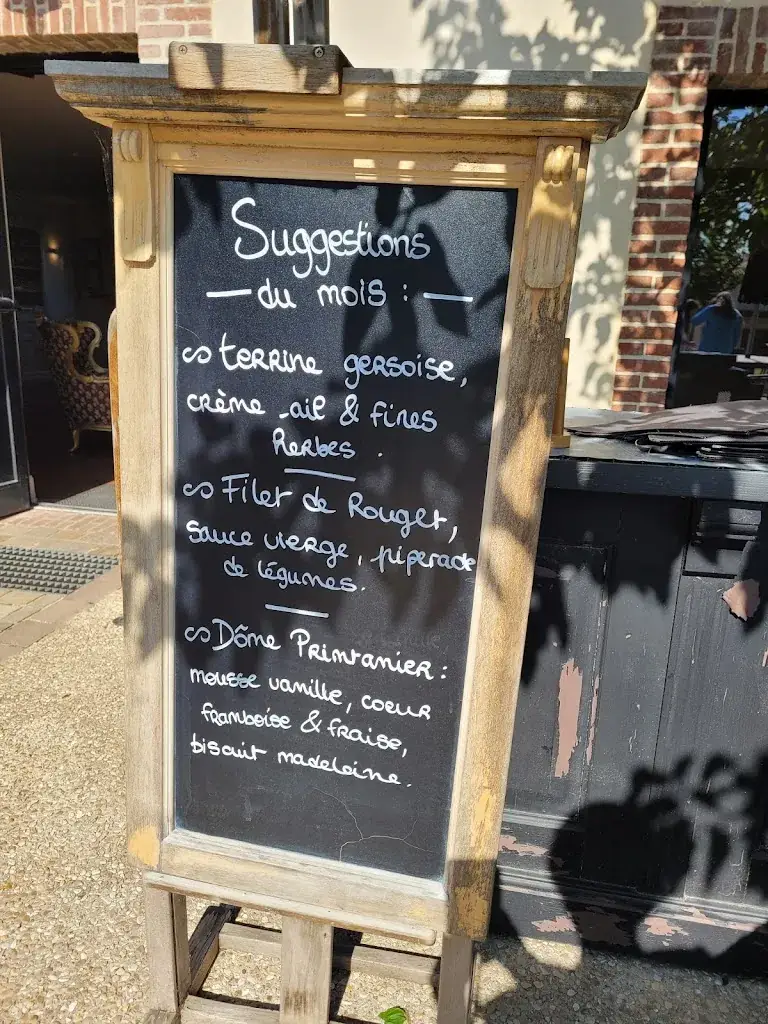 Suggestions
— du mois : —
∽ terrine gersoise,
crème d'ail & fines
herbes .
∽ Filet de Rouget,
sauce vierge, piperade
de légumes.
∽ Dôme Printanier :
mousse vanille, coeur
framboise & fraise,
biscuit madeleine.